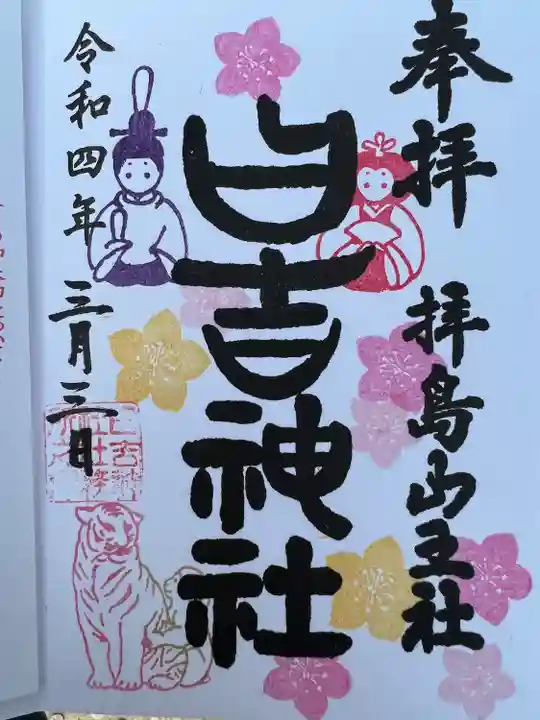 奉拝 拝島山王社
日吉神社
令和四年 三月三日